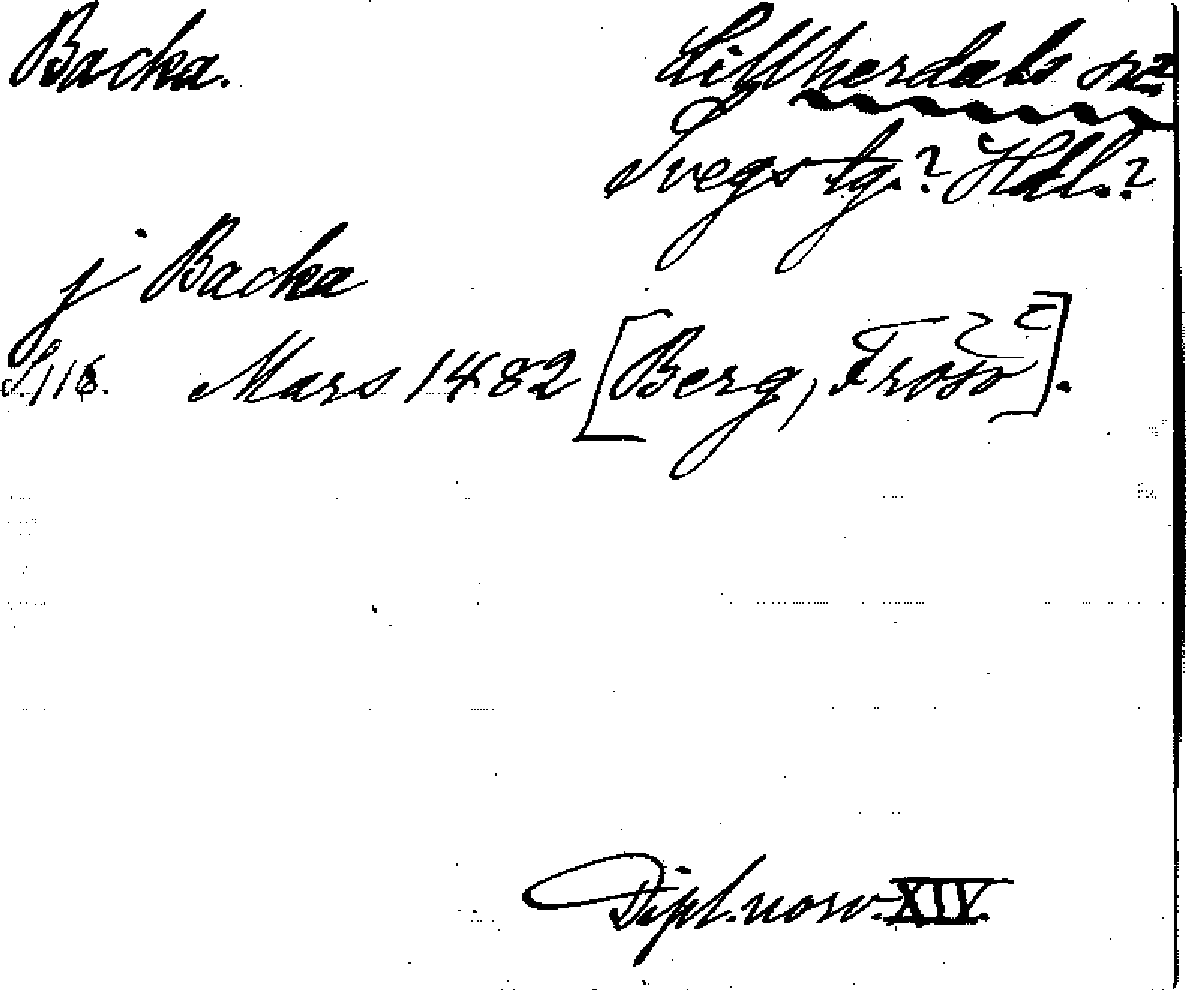 Backa.
Lillherdals sn?
Svegs tg.? Hdl.?
j Backa
S. 116. Mars 1482 [Berg, Frösö].
Dipl. norv. XIV.